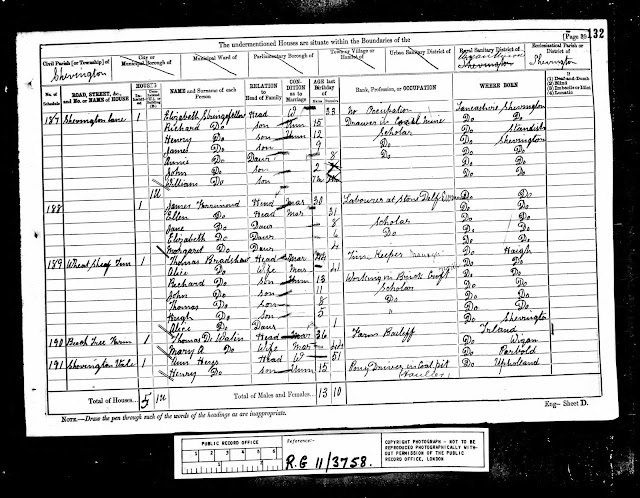 The undermentioned Houses are situate within the Boundaries of the
[Page 39 132
Civil Parish [or Township] of
Shevington
City or
Municipal Borough of
Municipal Ward of
Parliamentary Borough of
Town or Village or Hamlet of
Urban Sanitary District of
Rural Sanitary District of
Ecclesiastical Parish or District of
Shevington
No. of Schedule
ROAD, STREET, &c., and No. or NAME of HOUSE
HOUSES
NAME and Surname of each Person
RELATION to Head of Family
CONDITION as to Marriage
AGE last Birthday of
Rank, Profession, or OCCUPATION
WHERE BORN
If
(1) Deaf-and-Dumb
(2) Blind
(3) Imbecile or Idiot
(4) Lunatic
187 Shevington Lane 1 Elizabeth Stringfellow Head W 33 No Occupation Lancashire Shevington
Richard Do son Unm 15 Drawer in Coal Mine Do Do
Henry Do son Unm 12 Scholar Do Standish
James Do son 9 Do Do Shevington
Annie Do Daur 8 Do Do Do
John Do son 2 Do Do
William Do son Do Do
188 1 James Do Head Mar 30 Labourer at Stone Delf Do Do
Ellen Do Head Mar 31 Do Do
Jane Do Daur 8 Scholar Do Do
Elizabeth Do Daur 6 Do Do Do
Margaret Do Daur 4 Do Do
189 Wheat Sheaf Inn 1 Thomas Bradshaw Head Mar 44 Inn Keeper Do Haigh
Alice Do Wife Mar 41 Do Do
Richard Do Son Unm 13 Working in Brick Croft Do Do
John Do son 11 Scholar Do Do
Thomas Do son 8 Do Do Do
Hugh Do son 5 " Do Do
Alice Do Daur Do Shevington
190 Beech Tree Farm 1 Thomas De Walin Head Mar 36 Farm Bailiff Ireland
Mary A Do Wife Mar Do Wigan
191 Shevington Vale 1 Ann Head W 51 Do Parbold
Henry Do son Unm 15 Pony Driver in Coal pit (Haulier) Do Upholland
Total of Houses... 5
Total of Males and Females... 13 10
NOTE.—Draw the pen through such of the words of the headings as are inappropriate.
Eng— Sheet D.
PUBLIC RECORD OFFICE
1 2 3 4 5 6
Reference:-
R.G 11/3758.
COPYRIGHT PHOTOGRAPH - NOT TO BE REPRODUCED PHOTOGRAPHICALLY WITHOUT PERMISSION OF THE PUBLIC RECORD OFFICE, LONDON